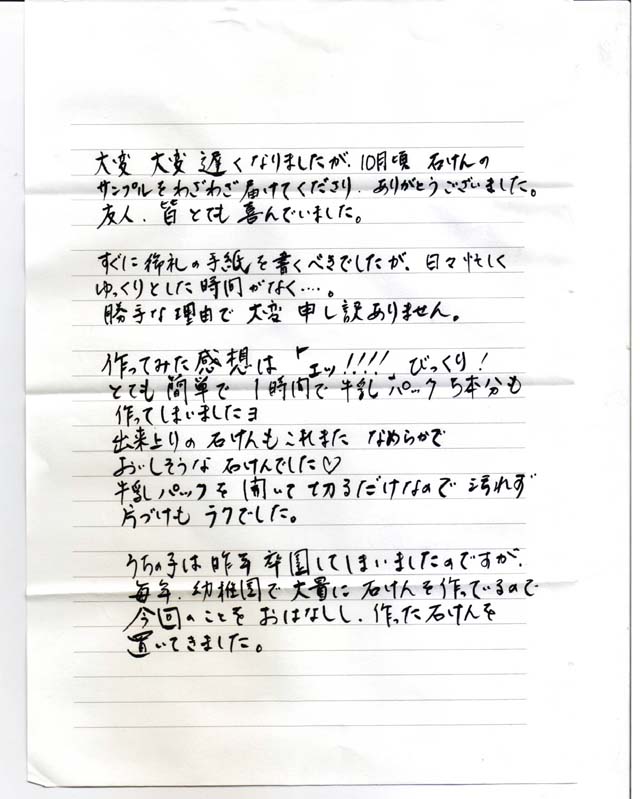 大変 大変 遅くなりましたが、10月頃 石けんの
サンプルをわざわざ届けてくださり、ありがとうございました。
友人、皆とても喜んでいました。
すぐに御礼の手紙を書くべきでしたが、日々忙しく
ゆっくりとした時間がなく‥‥。
勝手な理由で大変申し訳ありません。
作ってみた感想は「エッ!!!! びっくり!
とても簡単で 1時間で牛乳パック5本分も
作ってしまいましたヨ
出来上りの石けんもこれまた なめらかで
おいしそうな石けんでした♡
牛乳パックを開いて切るだけなので汚れず
片づけもラクでした。
うちの子は昨年卒園してしまいましたのですが、
毎年、幼稚園で大量に石けんを作っているので
今回のことをおはなしし、作った石けんを
置いてきました。